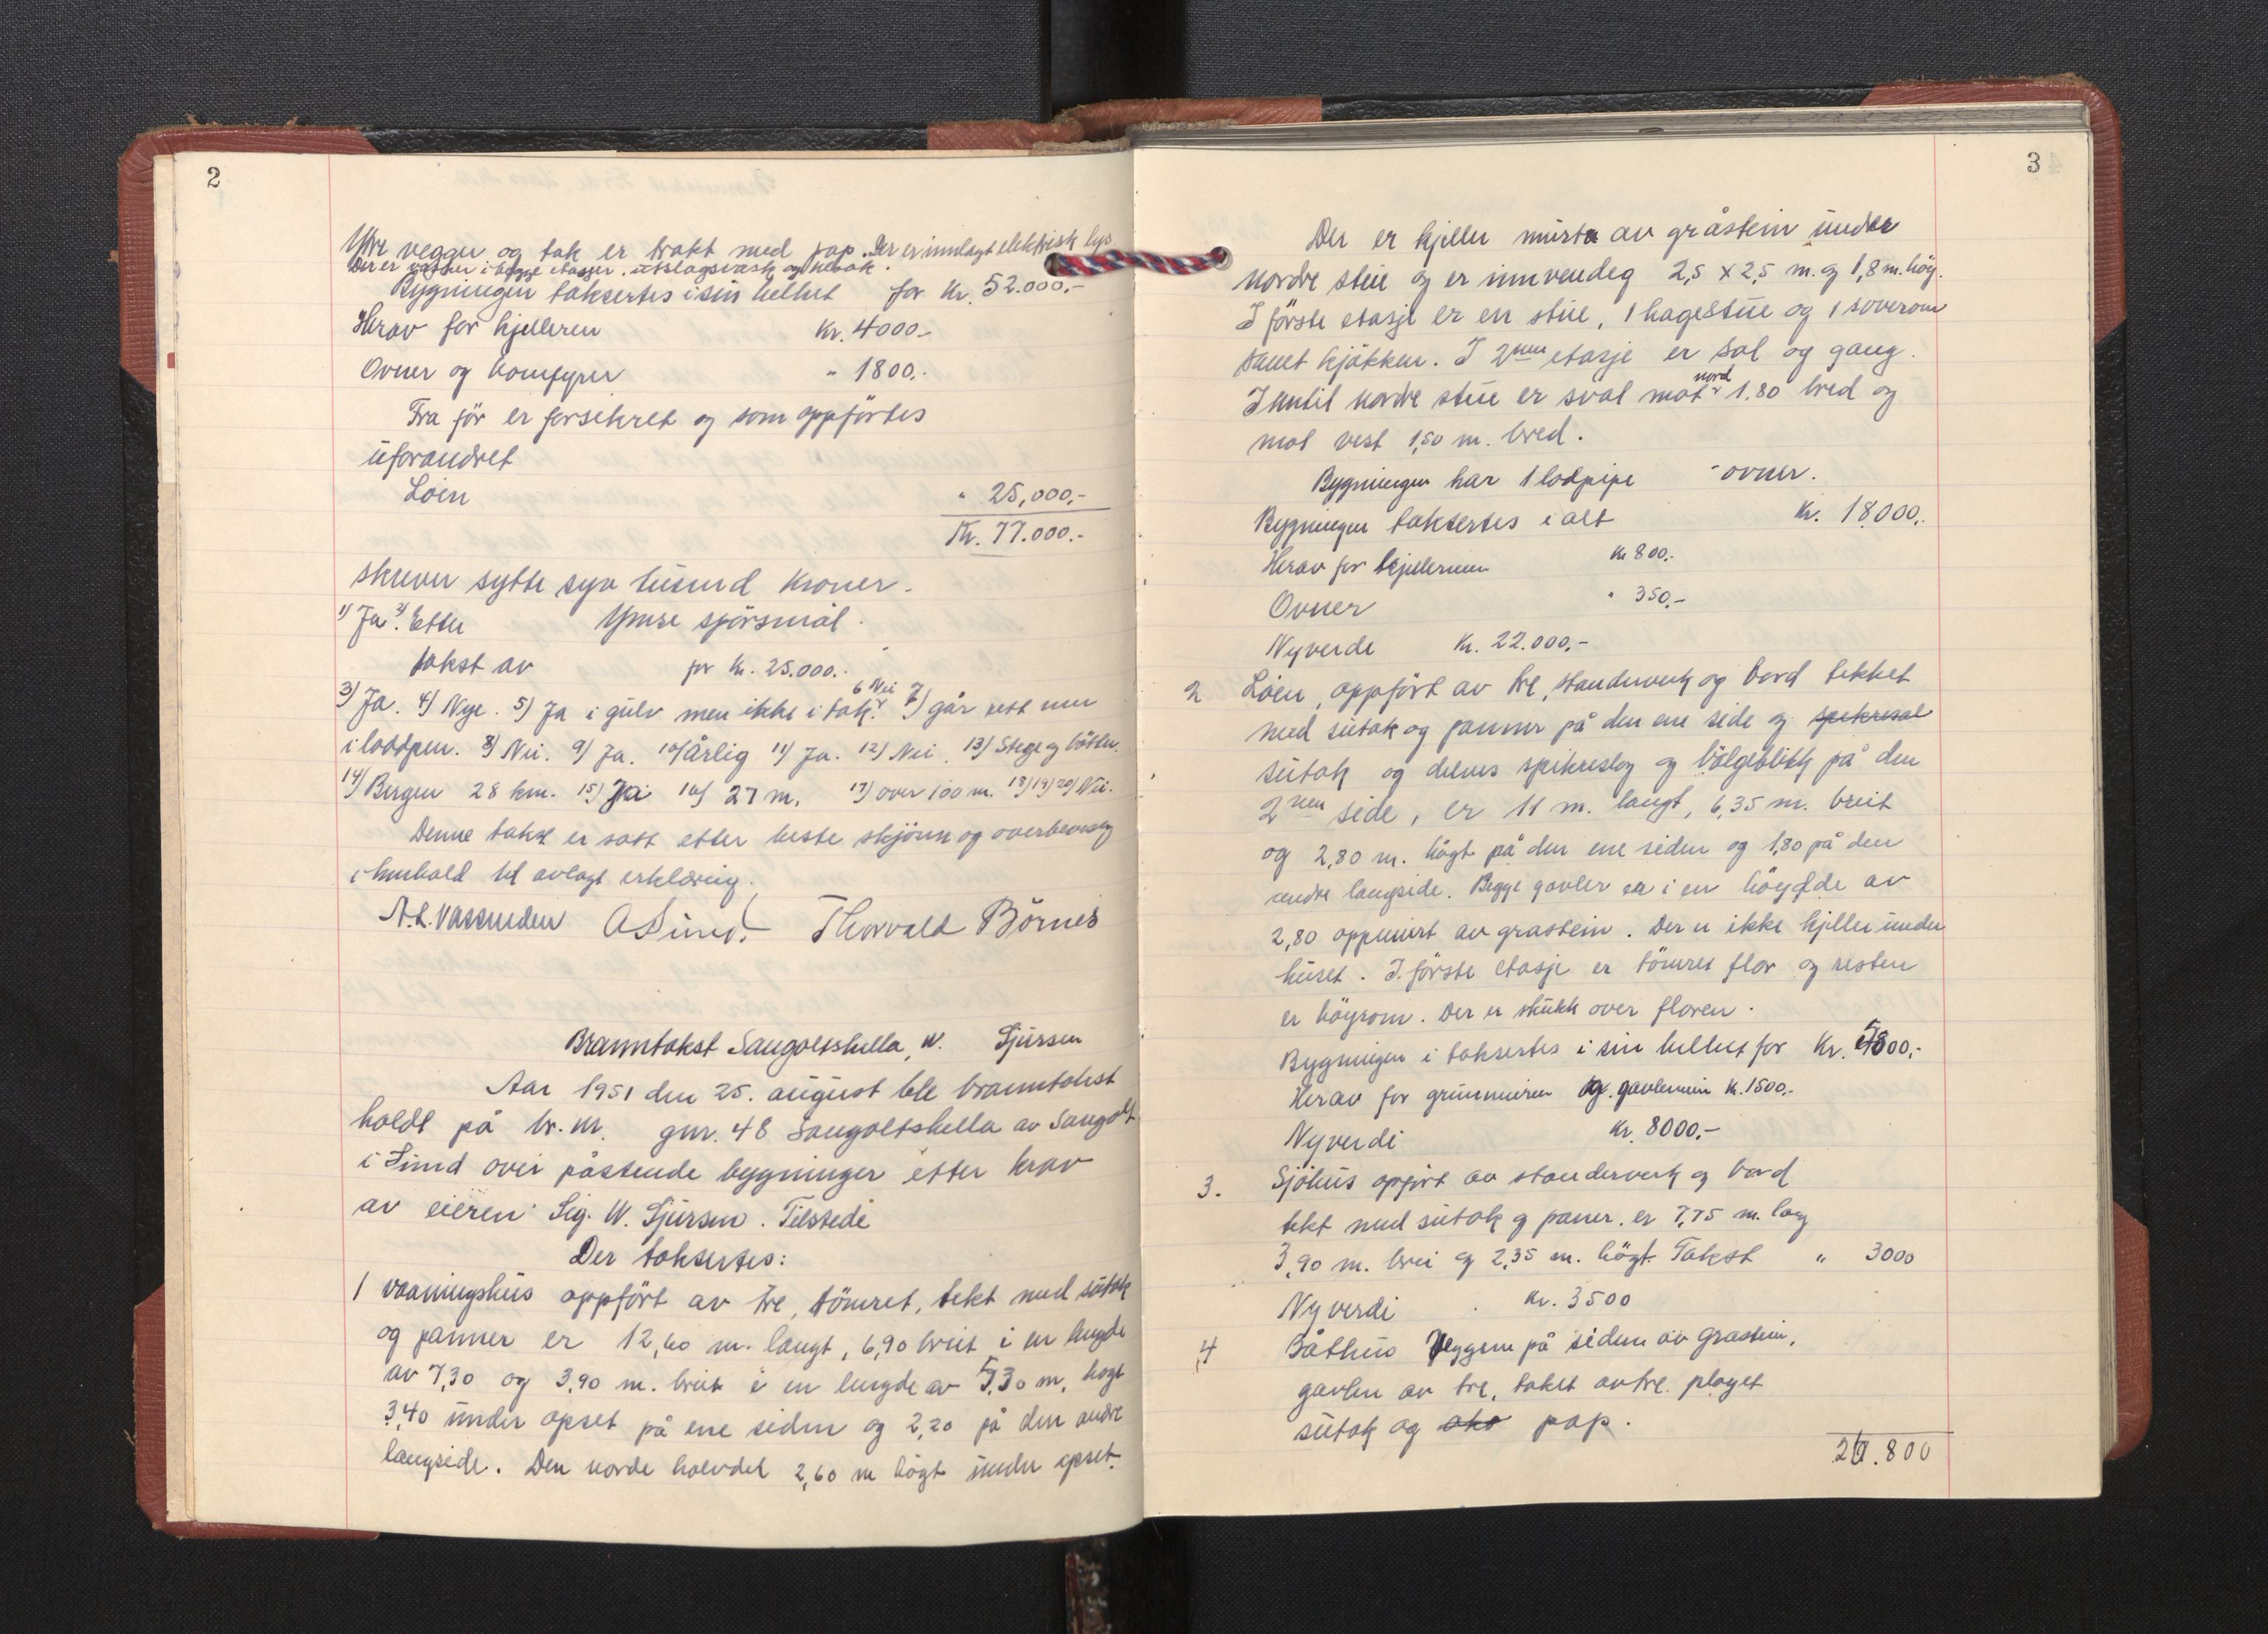 2
Ytre vegger og tak er trakt med pap. Der er innlagt elektrisk lys
Der er vatten i begge etasjer. utslagsvask og
Bygningen taksertes i sin helhet for Kr. 52.000.-
Herav for kjelleren Kr. 4000.-
Ovner og komfyrer " 1800.-
Fra för er forsikret og som oppförtes
uforandret
Löen " 25,000.-
Kr. 77.000.-
skriver sytti syv tusend Kroner.
1) Ja 2) Etter Ymse spörsmål.
takst av for Kr. 25.000.-
3) Ja. 4) Nye. 5) Ja i gulv men ikke i tak. 6 Nei 7) går rett ner
i loddpen. 8) Nei. 9) Ja. 10) årlig 11) Ja. 12) Nei. 13) Stege og bötter.
14) Bergen 28 km. 15) Ja 16) 27 m. 17) over 100 m. 18) 19) 20) Nei.
Denne takst er satt etter beste skjönn og overbevisng
i henhold til avlagt erklæring.
A. L. Vassenden A Sund. Thorvald Börnes
Branntakst Saugoltshella, W. Sjursen
Aar 1951 den 25. august ble branntakst
holdt på br. nr. gnr. 48 Saugoltshella av Saugolt
i Sund over påstende bygninger etter krav
av eieren Sig. W. Sjursen. Tilstede
Der taksertes:
1 vaaningshus oppfört av tre, tömret, tekt med sutak
og panner er 12,60 m. langt, 6,90 breit i en lengde
av 7,30 og 3,90 m. breit i en lengde av 5,30 m, högt
3,40 under opset på ene siden og 2,20 på den andre
langside. Den nordre halvdel 2,60 m högt under opset.
3
Der er kjeller murte av gråstein under
nordre stue og er innvendeg 2,5 x 2,5 m. og 1,8 m. hög.
I förste etasje er en stue, 1 hagestue og 1 soverom
samt kjökken. I 2nen etasje er sal og gang.
Inntil nordre stue er sval mot nord 1.80 bred og
mot vest 1,50 m. bred.
Bygningen har 1 lodpipe - ovner.
Bygningen taksertes i alt Kr. 18000.-
Herav for kjelleren Kr 800.-
Ovner " 350.-
Nyverde Kr. 22.000.-
2 Löen, oppfört av tre, standerverk og bord tekket
med sutak og panner på den ene side og spekresol
sutak og delvis spikreslog og bölgeblikk på den
2nen side, er 11 m. langt, 6,35 m. breit
og 2,80 m. högt på den ene siden og 1,80 på den
andre langside. Begge gavler er i en höyde av
2,80 oppmurt av grastein. Der er ikke kjeller under
huset. I förste etasje er tömret flor og resten
er höyrom. Der er stukk over floren.
Bygningen i taksertes i sin helhet for Kr. 5800.-
Herav for grunnmuren og gavlemuren Kr. 1500.-
Nyverdi Kr. 8000.-
3. Sjöhus oppfört av standerverk og bord
tekt med sutak og paner. er 7,75 m. lang
3,90 m. brei og 2,35 m. högt. Takst " 3000
Nyverdi Kr. 3500
4 Båthus Veggene på siden av grastein,
gavlen av tre, taket av tre. ployet
sutak og pap.
26.800